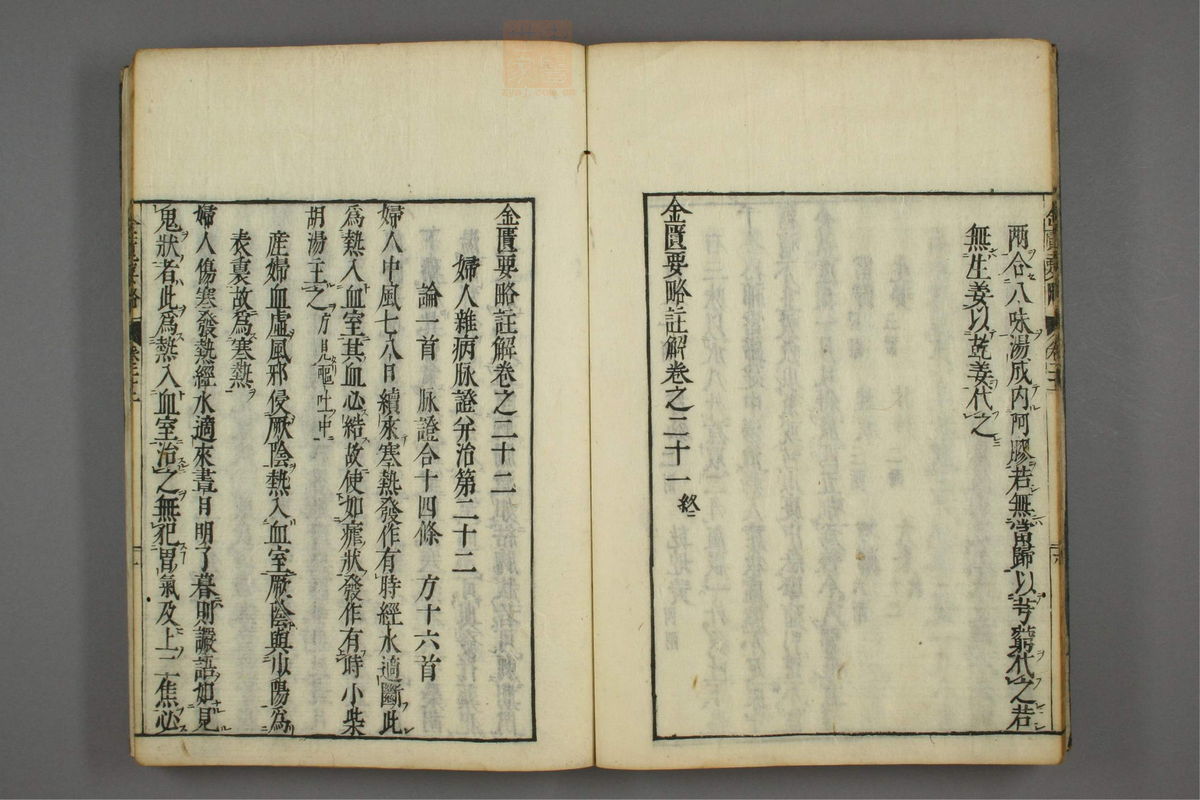 两合八味湯成内阿膠若無當歸以芎藭代之若
無生姜以乾姜代之
金匱要略註解卷之二十一終
金匱要略註解卷之二十二
婦人雜病脉證并治第二十二
論一首 脉證合十四條 方十六首
婦人中風七八日續來寒熱發作有時經水適斷此
爲熱入血室其血必結故使如瘧狀發作有時小柴
胡湯主之方見嘔吐中
産婦血虛風邪侵厥陰熱入血室厥陰與少陽爲
表裏故爲寒熱
婦人傷寒發熱經水適來晝日明了暮則譫語如見
鬼狀者此爲熱入血室治之無犯胃氣及上二焦必